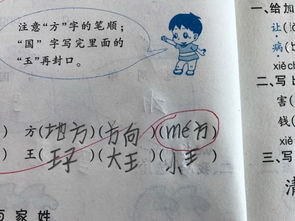 注意“方”字的笔顺；
“国”字写完里面的
“玉”再封口。
一、给加
让(
病(
xiě ch
二、写
害(
钱(
xiě
三、写
清
) 方(地方)(方向)(mé方)
) 王(王子)(大王)(小王)
百家姓